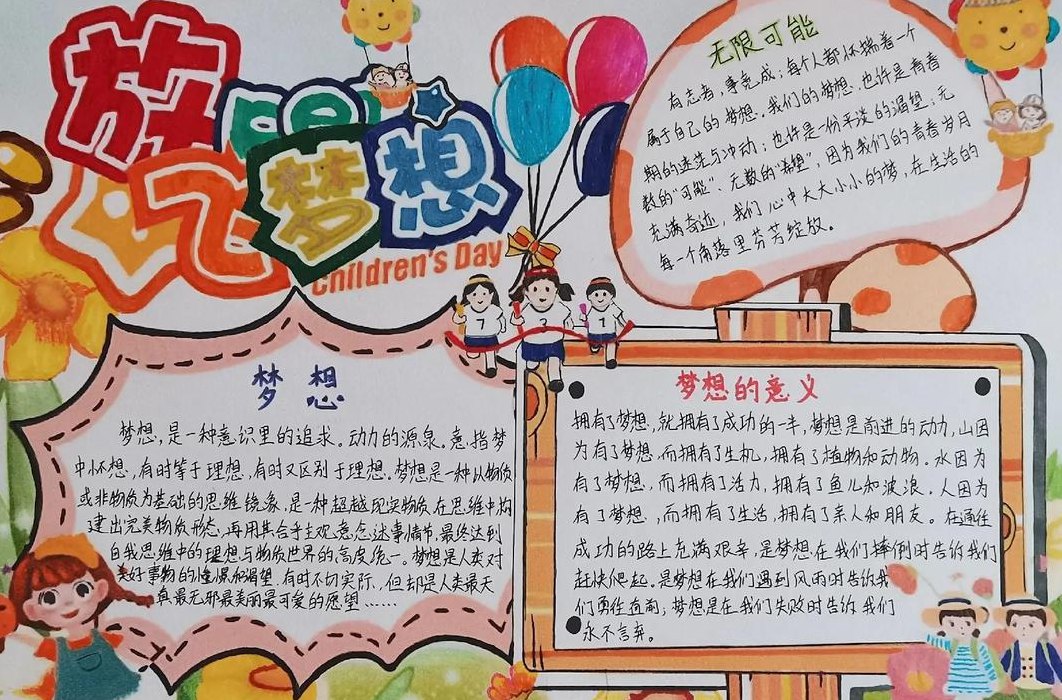 放飞梦想
Children's Day
无限可能
有志者，事竟成；每个人都怀揣着一个
属于自己的梦想。我们的梦想，也许是青春
期的迷茫与冲动；也许是一份平淡的渴望；无
数的“可能”、无数的“希望”，因为我们的青春岁月
充满奇迹，我们心中大大小小的梦，在生活的
每一个角落里芬芳绽放。
梦想
梦想，是一种意识里的追求。动力的源泉。意指梦
中怀想，有时等于理想，有时又区别于理想。梦想是一种以物质
或非物质为基础的思维镜象，是一种超越现实物质在思维中构
建出完美物质形态，再用其合乎主观意念述事情节，最终达到
自我思维中的理想与物质世界的高度统一。梦想是人类对
美好事物的憧憬和渴望，有时不切实际，但却是人类最天
真最无邪最美丽最可爱的愿望……
梦想的意义
拥有了梦想，就拥有了成功的一半，梦想是前进的动力，山因
为有了梦想，而拥有了生机，拥有了植物和动物。水因为
有了梦想，而拥有了活力，拥有了鱼儿和波浪。人因为
有了梦想，而拥有了生活，拥有了亲人和朋友。在通往
成功的路上充满艰辛，是梦想在我们摔倒时告诉我们
赶快爬起。是梦想在我们遇到风雨时告诉我
们勇往直前；梦想是在我们失败时告诉我们
永不言弃。